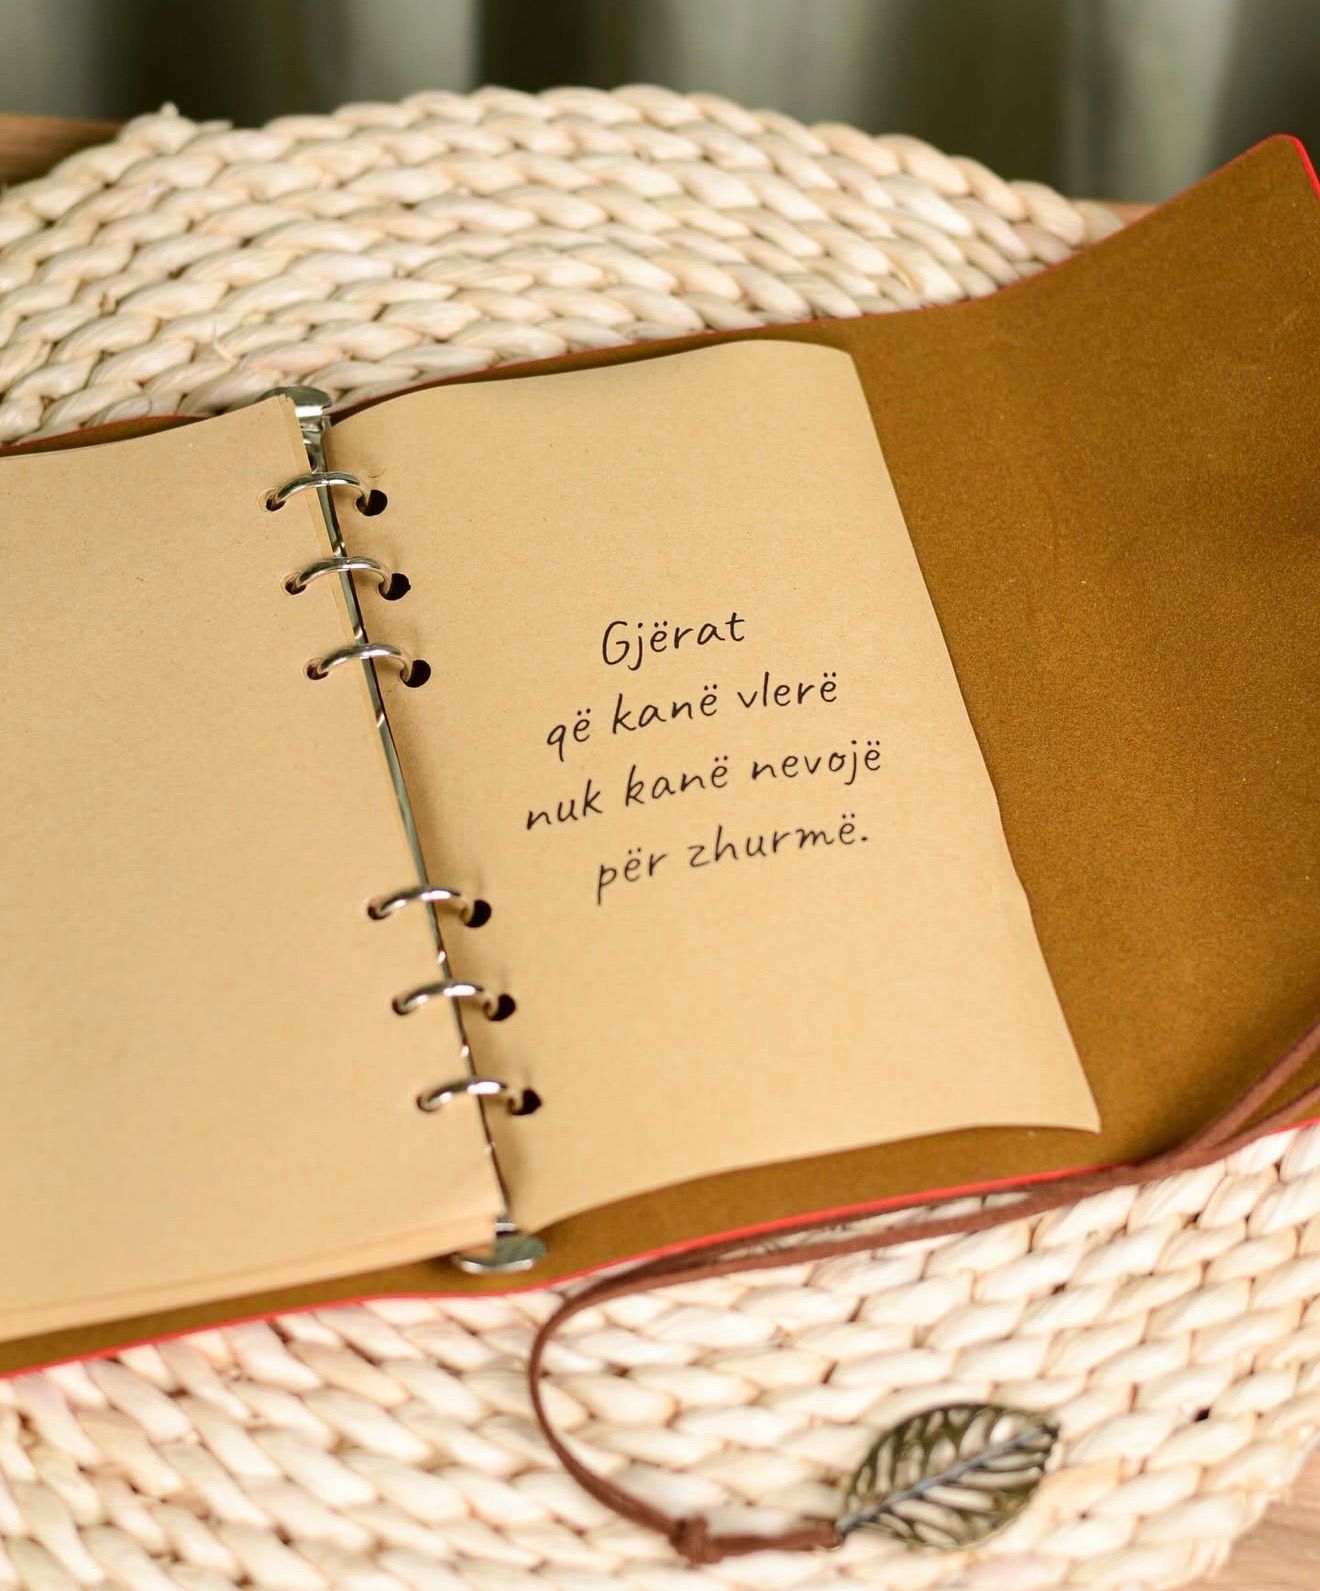 Gjërat
që kanë vlerë
nuk kanë nevojë
për zhurmë.